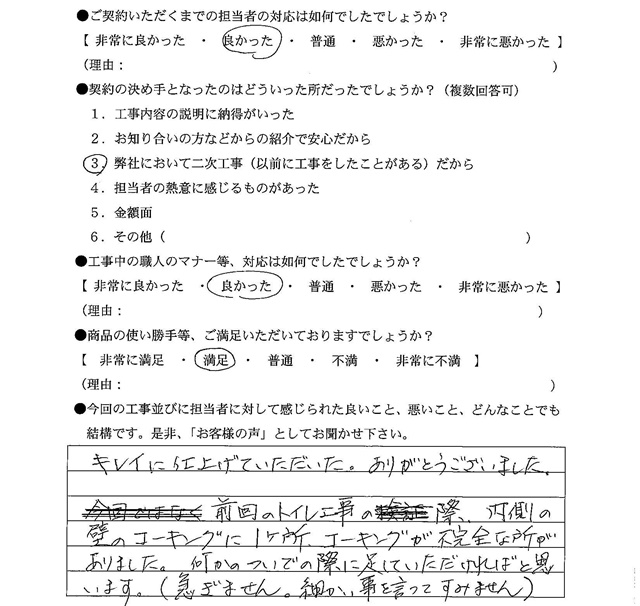 ●ご契約いただくまでの担当者の対応は如何でしたでしょうか？
【 非常に良かった ・ 良かった ・ 普通 ・ 悪かった ・ 非常に悪かった 】
（理由：　　　　　　　　　　　　　　　　　　　　　）
●契約の決め手となったのはどういった所だったでしょうか？（複数回答可）
１．工事内容の説明に納得がいった
２．お知り合いの方などからの紹介で安心だから
３．弊社において二次工事（以前に工事をしたことがある）だから
４．担当者の熱意に感じるものがあった
５．金額面
６．その他（　　　　　　　　　　　　　　　　　　　　　）
●工事中の職人のマナー等、対応は如何でしたでしょうか？
【 非常に良かった ・ 良かった ・ 普通 ・ 悪かった ・ 非常に悪かった 】
（理由：　　　　　　　　　　　　　　　　　　　　　）
●商品の使い勝手等、ご満足いただいておりますでしょうか？
【 非常に満足 ・ 満足 ・ 普通 ・ 不満 ・ 非常に不満 】
（理由：　　　　　　　　　　　　　　　　　　　　　）
●今回の工事並びに担当者に対して感じられた良いこと、悪いこと、どんなことでも
結構です。是非、「お客様の声」としてお聞かせ下さい。
キレイに仕上げていただいた。ありがとうございました。
今回ではなく 前回のトイレ工事の 際、内側の
壁のコーキングに１ヶ所 コーキングが不完全な所が
ありました。何かのついでの際に足していただければと思
います。（急ぎません。細かい事を言ってすみません）